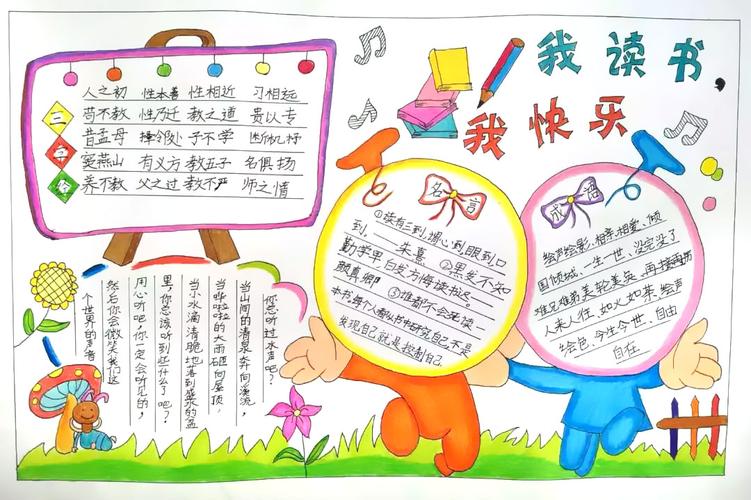 我读书，
我快乐
三
字
人之初 性本善 性相近 习相远
苟不教 性乃迁 教之道 贵以专
昔孟母 择邻处 子不学 断机杼
窦燕山 有义方 教五子 名俱扬
养不教 父之过 教不严 师之情
名言
①读有三到，谓心到眼到口
到，——朱熹 ②黑发不知
勤学早白发方悔读书迟。
颜真卿 ③谁都不会来读
本书每个人都从书中研究自己不是
发现自己就是控制自己
成语
绘声绘影，相亲相爱、倾
国倾城、一生一世、没完没了
难兄难弟美轮美奂、再接再厉
人来人往、如火如荼、绘声
绘色、今生今世、自由
自在
你总听过水声吧？
当山间的清泉奔向溪流，
当哗啦啦的大雨砸向屋顶，
当小水滴清脆也落到盛水的盆
里，你总该听到些什么了吧？
用心听吧，你一定会听见的，
然后你会微笑我们这
个世界的声音